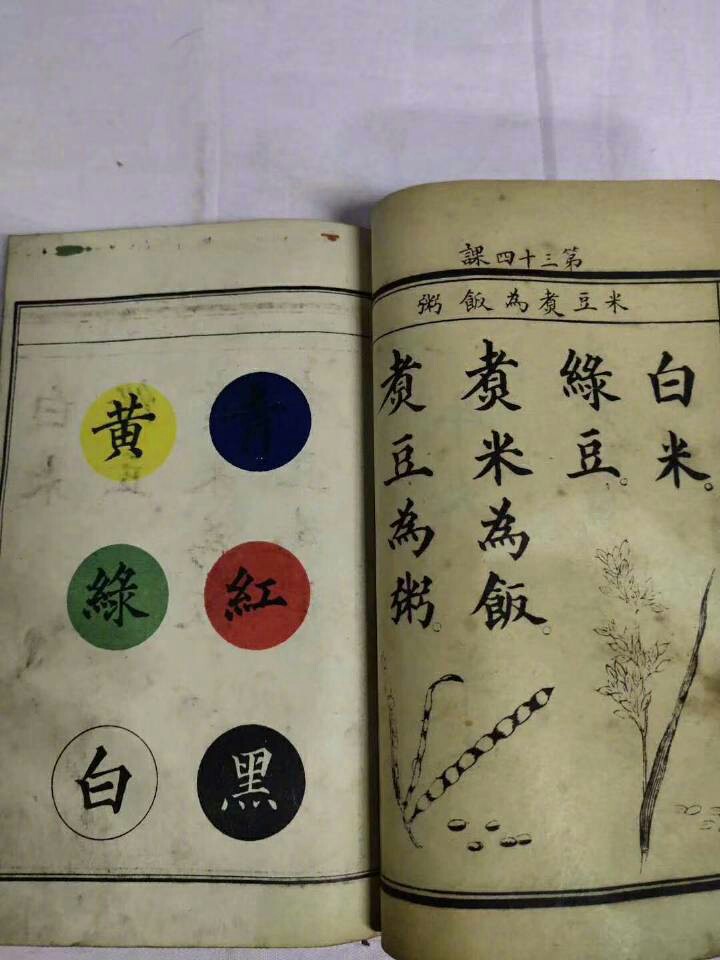 第三十四課
米豆煑為飯粥
白米。
綠豆。
煑米為飯。
煑豆為粥。
青 黄
紅 綠
黑 白